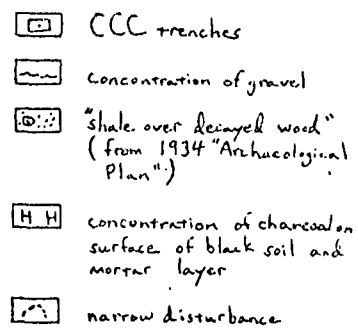 CCC trenches
concentration of gravel
"shale over decayed wood"
(from 1934 "Archaeological
Plan".)
H H concentration of charcoal on
surface of black soil and
mortar layer
narrow disturbance